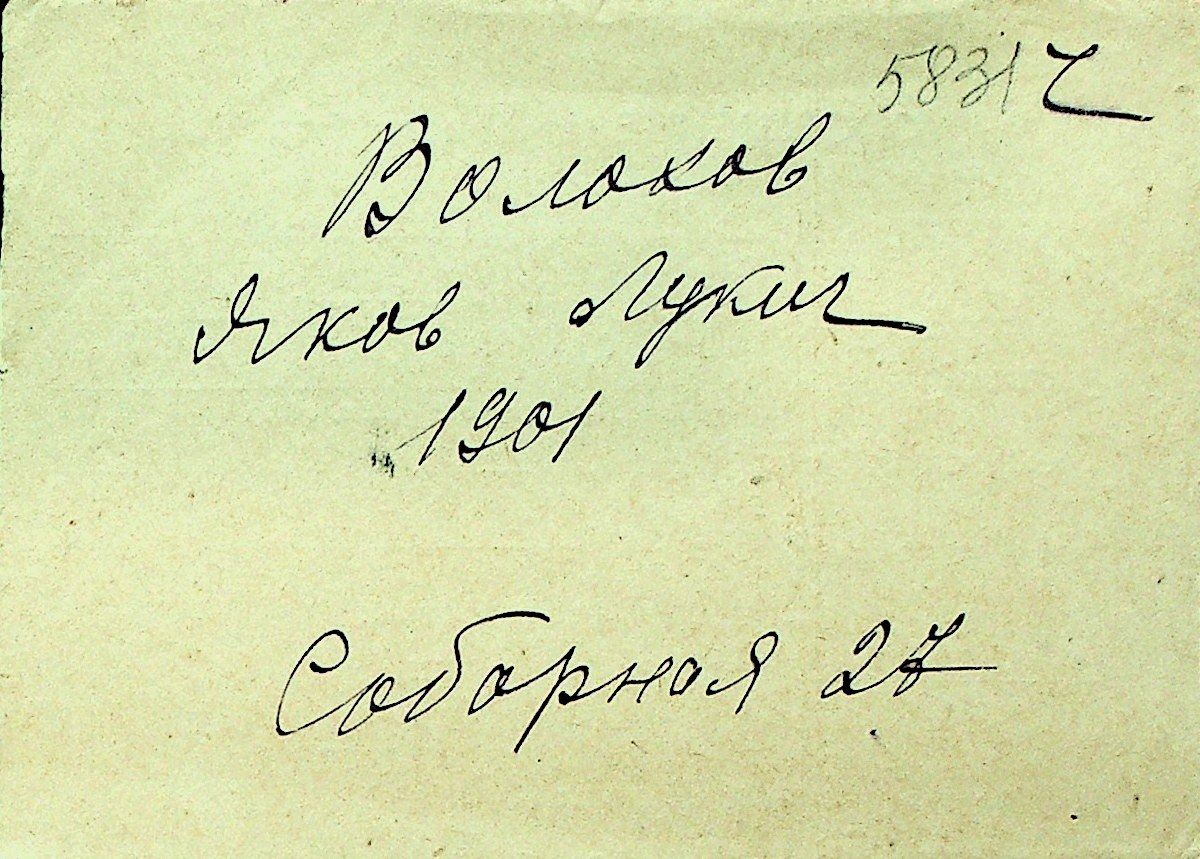 5831 ч
Волохов
Яков Лукич
1901
Соборная 27